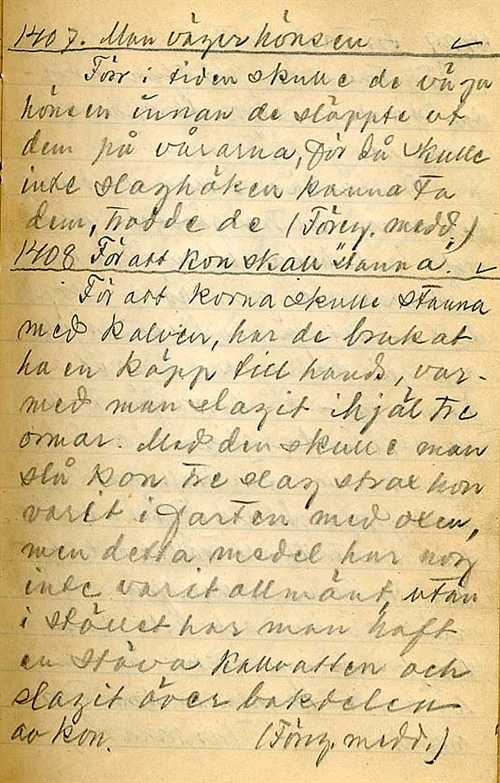 1407. Man väger hönsen
Förr i tiden skulle de väga
hönsen innan de släppte ut
dem på vårarna, för då skulle
inte slaghöken kunna ta
dem, trodde de (Föreg. medd.)
1408 För att kon skall "stanna".
För att korna skulle stanna
med kalven, har de brukat
ha en käpp till hands, var-
med man slagit ihjäl tre
ormar. Med den skulle man
slå kon tre slag strax hon
varit i farten med oxen,
men detta medel har nog
inte varit allmänt, utan
i stället har man haft
en stäva kallvatten och
slagit över bakdelen
av kon. (Föreg. medd.)